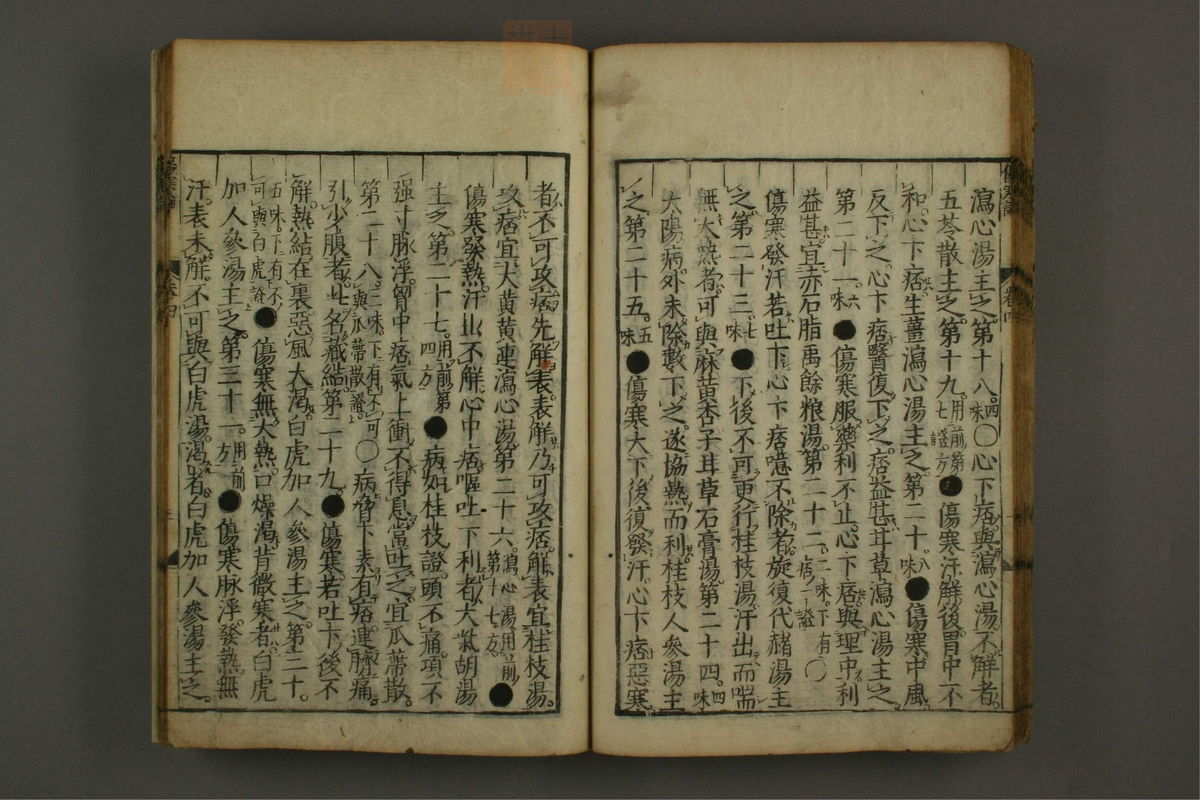 瀉心湯主之。第十八。四味○心下痞。與瀉心湯。不解者。
五苓散主之。第十九。用前第七證方●傷寒汗解後。胃中不
和。心下痞。生薑瀉心湯主之。第二十。八味●傷寒中風。
反下之。心下痞。醫復下之。痞益甚。甘草瀉心湯主之。
第二十一。六味●傷寒服藥利不止。心下痞。與理中。利
益甚。宜赤石脂禹餘粮湯。第二十二。二味。下有痞一證○
傷寒發汗。若吐下。心下痞。噫不除者。旋復代赭湯主
之。第二十三。七味●下後不可更行桂枝湯。汗出而喘。
無大熱者。可與麻黃杏子甘草石膏湯。第二十四。四味
太陽病。外未除。數下之。遂協熱而利。桂枝人參湯主
之。第二十五。五味●傷寒大下後。復發汗。心下痞。惡寒
者。不可攻痞。先解表。表解乃可攻痞。解表宜桂枝湯。
攻痞宜大黃黃連瀉心湯。第二十六。瀉心湯用前第十七方。●
傷寒發熱。汗出不解。心中痞。嘔吐下利者。大柴胡湯
主之。第二十七。用前第四方●病如桂枝證。頭不痛。項不
强。寸脉浮。胷中痞。氣上衝不得息。當吐之。宜瓜蔕散。
第二十八。三味。下有不可與瓜蔕散證。○病脅下素有痞。連臍痛。
引少腹者。此名藏結。第二十九。●傷寒若吐下後。不
解。熱結在裏。惡風大渴。白虎加人參湯主之。第三十。
五味。下有不可與白虎證。●傷寒無大熱。口燥渴。背微寒者。白虎
加人參湯主之。第三十一。用前方●傷寒脉浮。發熱。無
汗。表未解。不可與白虎湯。渴者。白虎加人參湯主之。
傷寒論
卷四
卷四